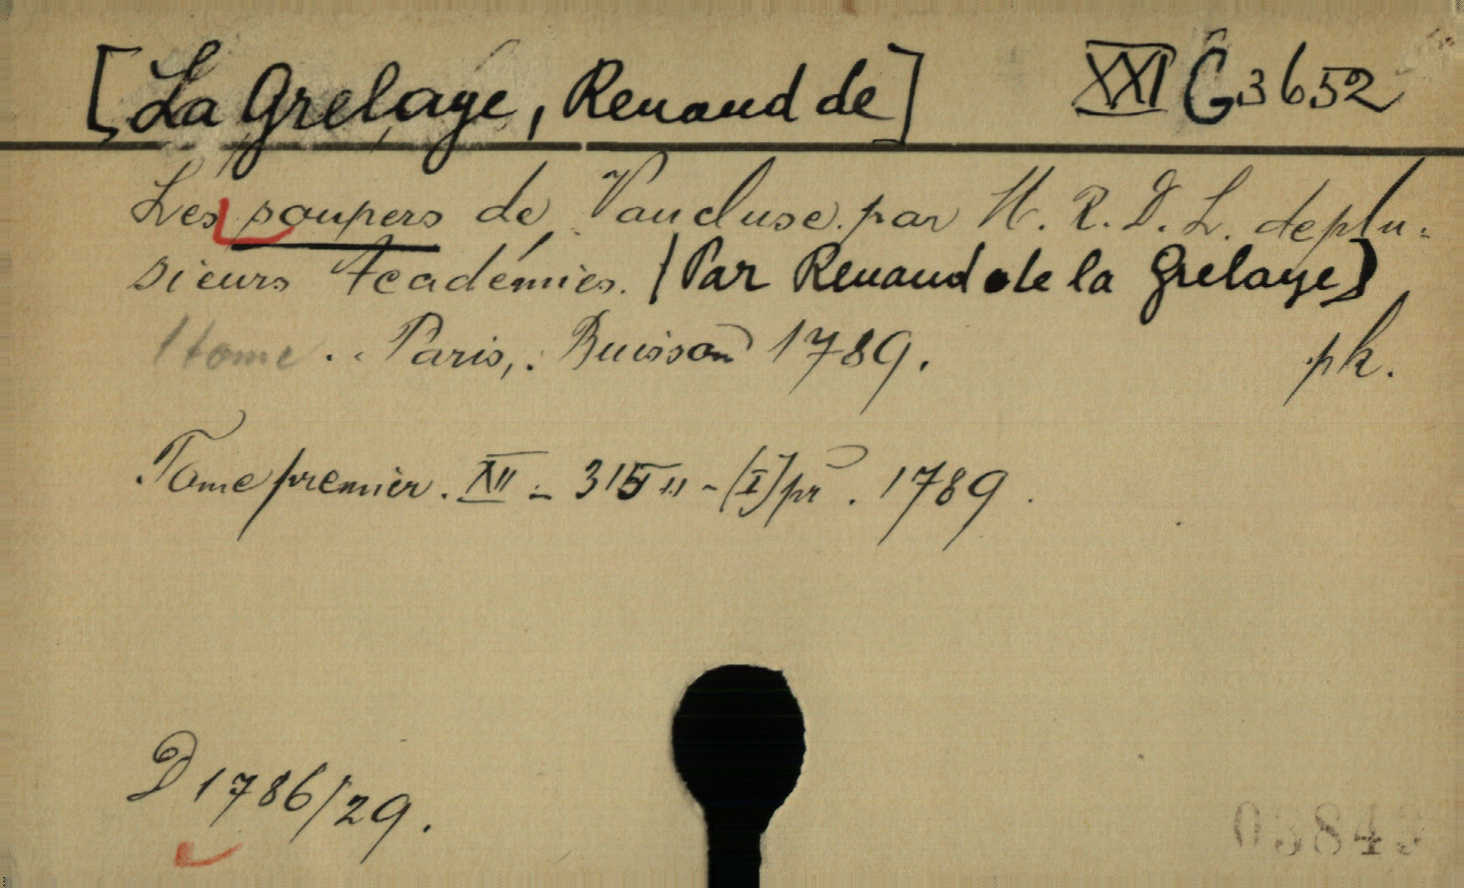 [La Grelaye, Renaud de] XXI G 3652
Les soupers de Vaucluse par M. R. D. L. de plu-
sieurs Académies. (Par Renaud de la Grelaye)
1 tome . . Paris, . Buisson 1789. pk.
Tome premier. XII - 315 II - (I) pr . 1789 .
D 1786/29.